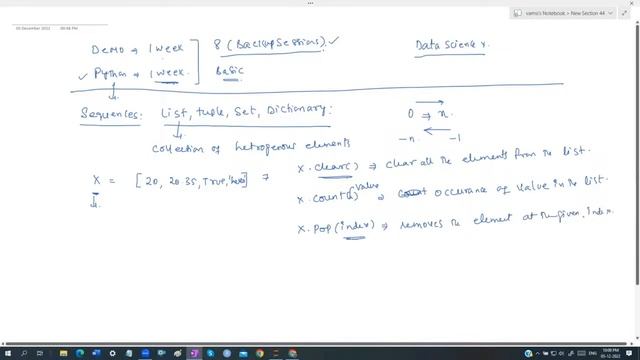 vamsi's Notebook > New Section 44
05 December 2022 09:08 PM
Demo → 1 week
8 (Backup Sessions) ✓
Data Science.
✓ Python → 1 week.
Basic
Sequences: List, tuple, Set, Dictionary:
0 ⇒ n.
-n ← -1
collection of hetrogenous elements
X = [20, 20.35, True,
x.clear() ⇒ clear all the elements from the list.
x.count(value) ⇒ occurance of value in the list.
x.pop(index) ⇒ removes the element at the given index.
ENG
10:08 PM
05-12-2022